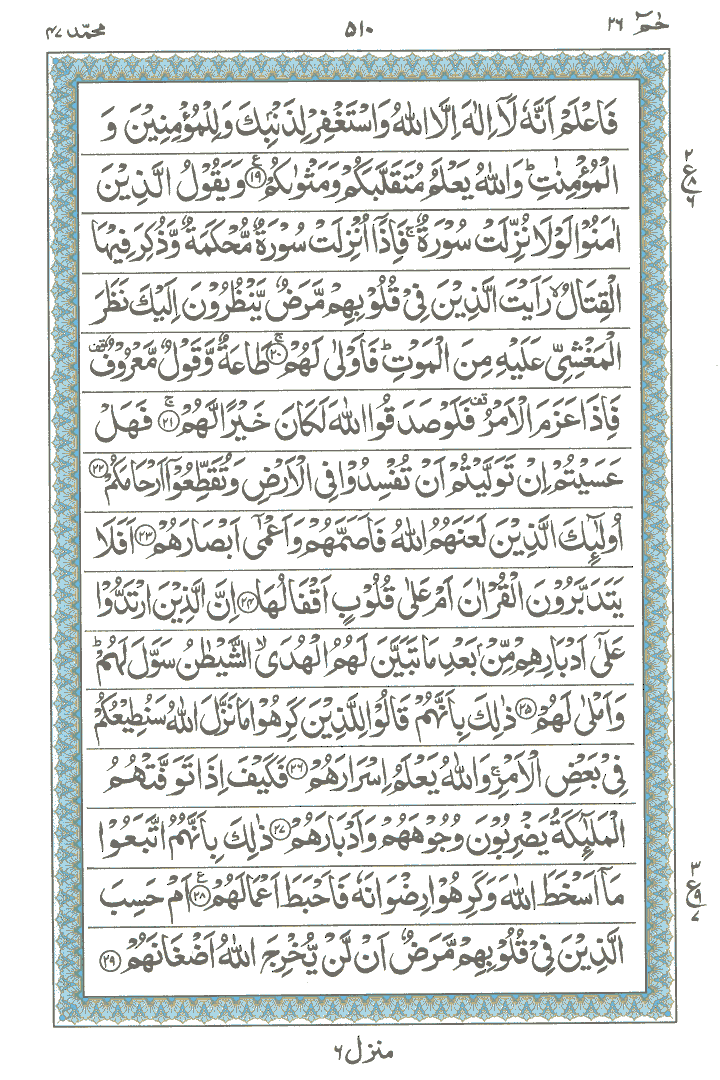 حٰمٓ ٢٦
٥١٠
محمّد ٤٧
فَاعْلَمْ اَنَّهٗ لَاۤ اِلٰهَ اِلَّا اللّٰهُ وَاسْتَغْفِرْ لِذَنْۢبِكَ وَلِلْمُؤْمِنِيْنَ وَ
الْمُؤْمِنٰتِؕ وَاللّٰهُ يَعْلَمُ مُتَقَلَّبَكُمْ وَمَثْوٰىكُمْ ﴿١٩﴾ ع وَيَقُوْلُ الَّذِيْنَ
اٰمَنُوْا لَوْلَا نُزِّلَتْ سُوْرَةٌۚ فَاِذَاۤ اُنْزِلَتْ سُوْرَةٌ مُّحْكَمَةٌ وَّذُكِرَ فِيْهَا
الْقِتَالُۙ رَاَيْتَ الَّذِيْنَ فِيْ قُلُوْبِهِمْ مَّرَضٌ يَّنْظُرُوْنَ اِلَيْكَ نَظَرَ
الْمَغْشِيِّ عَلَيْهِ مِنَ الْمَوْتِؕ فَاَوْلٰى لَهُمْۚ ﴿٢٠﴾ طَاعَةٌ وَّقَوْلٌ مَّعْرُوْفٌ قف
فَاِذَا عَزَمَ الْاَمْرُ قف فَلَوْ صَدَقُوا اللّٰهَ لَكَانَ خَيْرًا لَّهُمْۚ ﴿٢١﴾ فَهَلْ
عَسَيْتُمْ اِنْ تَوَلَّيْتُمْ اَنْ تُفْسِدُوْا فِي الْاَرْضِ وَتُقَطِّعُوْۤا اَرْحَامَكُمْ ﴿٢٢﴾
اُولٰٓئِكَ الَّذِيْنَ لَعَنَهُمُ اللّٰهُ فَاَصَمَّهُمْ وَاَعْمٰۤى اَبْصَارَهُمْ ﴿٢٣﴾ اَفَلَا
يَتَدَبَّرُوْنَ الْقُرْاٰنَ اَمْ عَلٰى قُلُوْبٍ اَقْفَالُهَا ﴿٢٤﴾ اِنَّ الَّذِيْنَ ارْتَدُّوْا
عَلٰۤى اَدْبَارِهِمْ مِّنْۢ بَعْدِ مَا تَبَيَّنَ لَهُمُ الْهُدَىۙ الشَّيْطٰنُ سَوَّلَ لَهُمْؕ
وَاَمْلٰى لَهُمْ ﴿٢٥﴾ ذٰلِكَ بِاَنَّهُمْ قَالُوْا لِلَّذِيْنَ كَرِهُوْا مَا نَزَّلَ اللّٰهُ سَنُطِيْعُكُمْ
فِيْ بَعْضِ الْاَمْرِۚ وَاللّٰهُ يَعْلَمُ اِسْرَارَهُمْ ﴿٢٦﴾ فَكَيْفَ اِذَا تَوَفَّتْهُمُ
الْمَلٰٓئِكَةُ يَضْرِبُوْنَ وُجُوْهَهُمْ وَاَدْبَارَهُمْ ﴿٢٧﴾ ذٰلِكَ بِاَنَّهُمُ اتَّبَعُوْا
مَاۤ اَسْخَطَ اللّٰهَ وَكَرِهُوْا رِضْوَانَهٗ فَاَحْبَطَ اَعْمَالَهُمْ ﴿٢٨﴾ ع اَمْ حَسِبَ
الَّذِيْنَ فِيْ قُلُوْبِهِمْ مَّرَضٌ اَنْ لَّنْ يُّخْرِجَ اللّٰهُ اَضْغَانَهُمْ ﴿٢٩﴾
٢
ع ٨
٦
٣
ع ٩
٧
منزل ٦